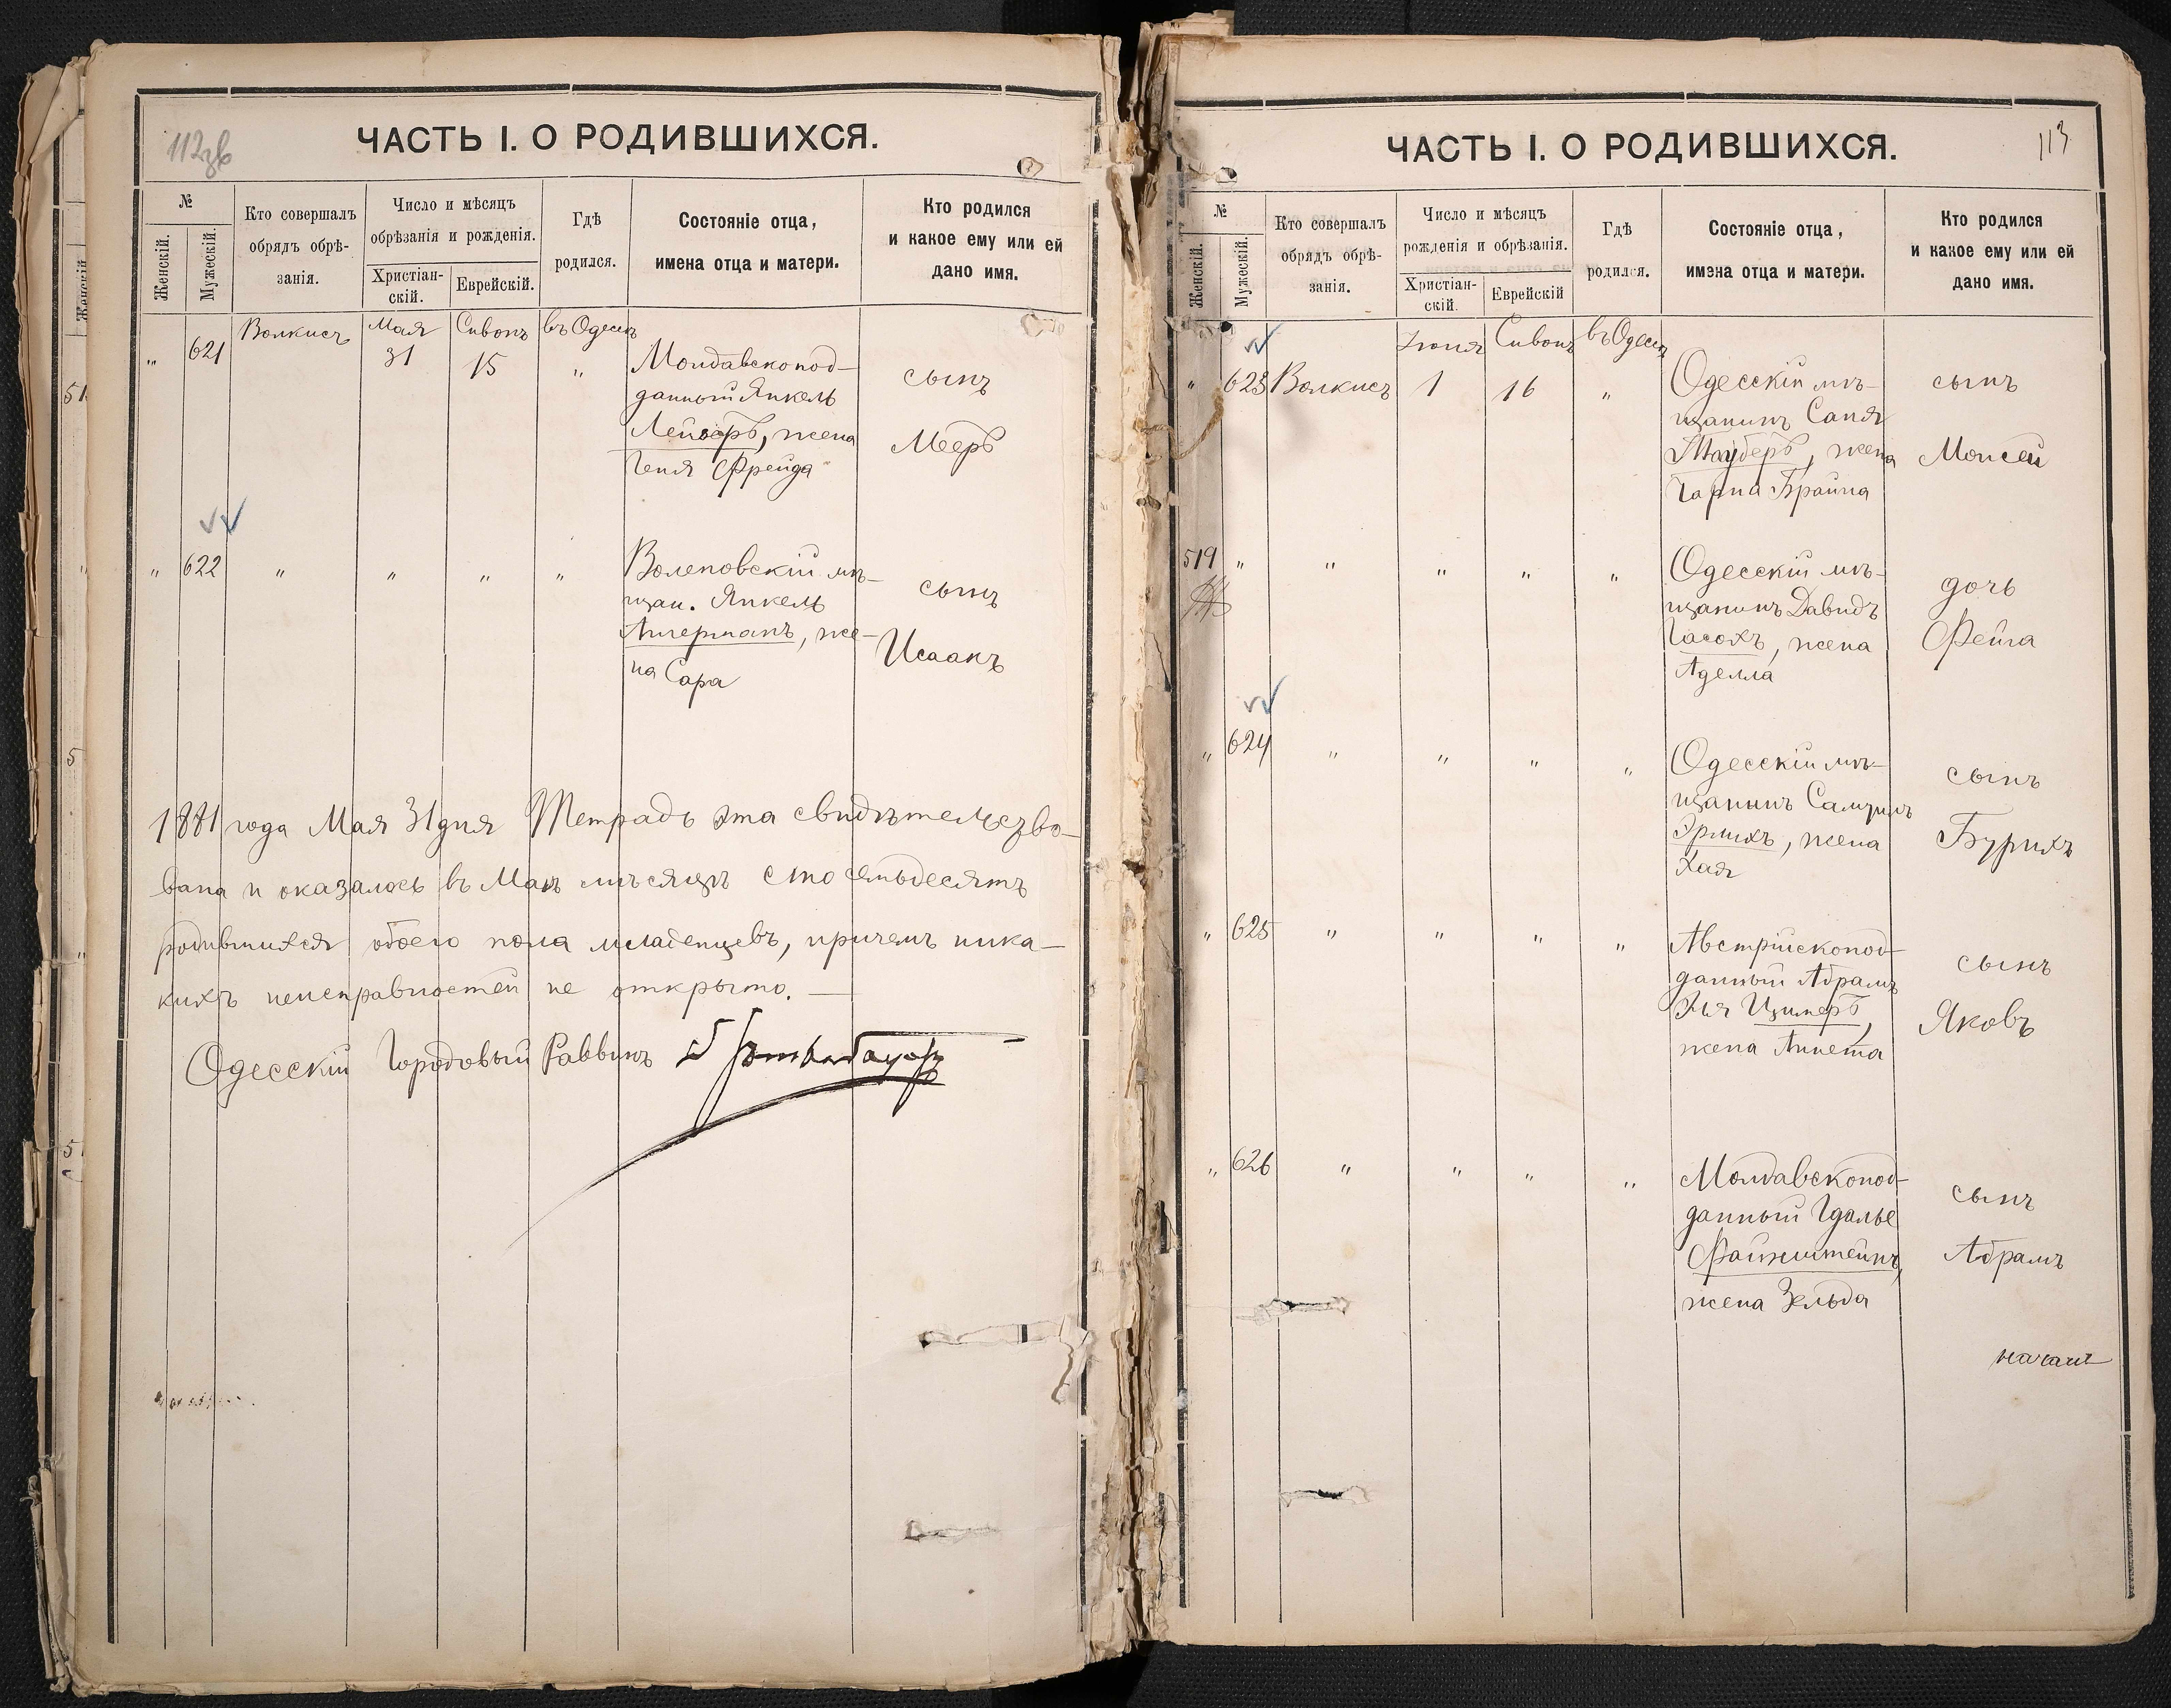 112зв
ЧАСТЬ I. О РОДИВШИХСЯ.
№
Женскій.
Мужескій.
Кто совершалъ
обрядъ обрѣ-
занія.
Число и мѣсяцъ
обрѣзанія и рожденія.
Христіан-
скій.
Еврейскій.
Гдѣ
родился.
Состояніе отца,
имена отца и матери.
Кто родился
и какое ему или ей
дано имя.
" 621 Волкисъ Мая 31 Сивонъ 15 въ Одессѣ "
Молдавскопод-
данный Янкель
Лейверъ, жена
Геня Фрейда
сынъ
Мееръ
" 622 " " " "
мѣ-
щан. Янкель
Акерманъ, же-
на Сара
сынъ
Исаакъ
1881 года Мая 31 дня Тетрадь эта свидѣтельство-
вана и оказалось въ Маѣ мѣсяцѣ сто семьдесятъ
родившихся обоего пола младенцевъ, причемъ ника-
кихъ неисправностей не открыто. —
Одесскій Городовый Раввинъ
113
ЧАСТЬ I. О РОДИВШИХСЯ.
№
Женскій.
Мужескій.
Кто совершалъ
обрядъ обрѣ-
занія.
Число и мѣсяцъ
рожденія и обрѣзанія.
Христіан-
скій
Еврейскій
Гдѣ
родился.
Состояніе отца,
имэна отца и матери.
Кто родился
и какое ему или ей
дано имя.
" 623 Волкисъ Іюня 1 Сивонъ 16 въ Одессѣ "
Одесскій мѣ-
щанинъ Саня
Тауберъ, жена
Брайна
сынъ
Моисей
519 " " " " "
Одесскій мѣ-
щанинъ Давидъ
Часохъ, жена
Аделла
дочь
Фейга
" 624 " " " "
Одесскій мѣ-
щанинъ Самуилъ
Эрлихъ, жена
Хая
сынъ
Бурихъ
" 625 " " " "
Австрійскопод-
данный Абрамъ
Эля Цимеръ,
жена Аннета
сынъ
Яковъ
" 626 " " " "
Молдавскопод-
данный Гдалье
Файнштейнъ,
жена Зельда
сынъ
Абрамъ